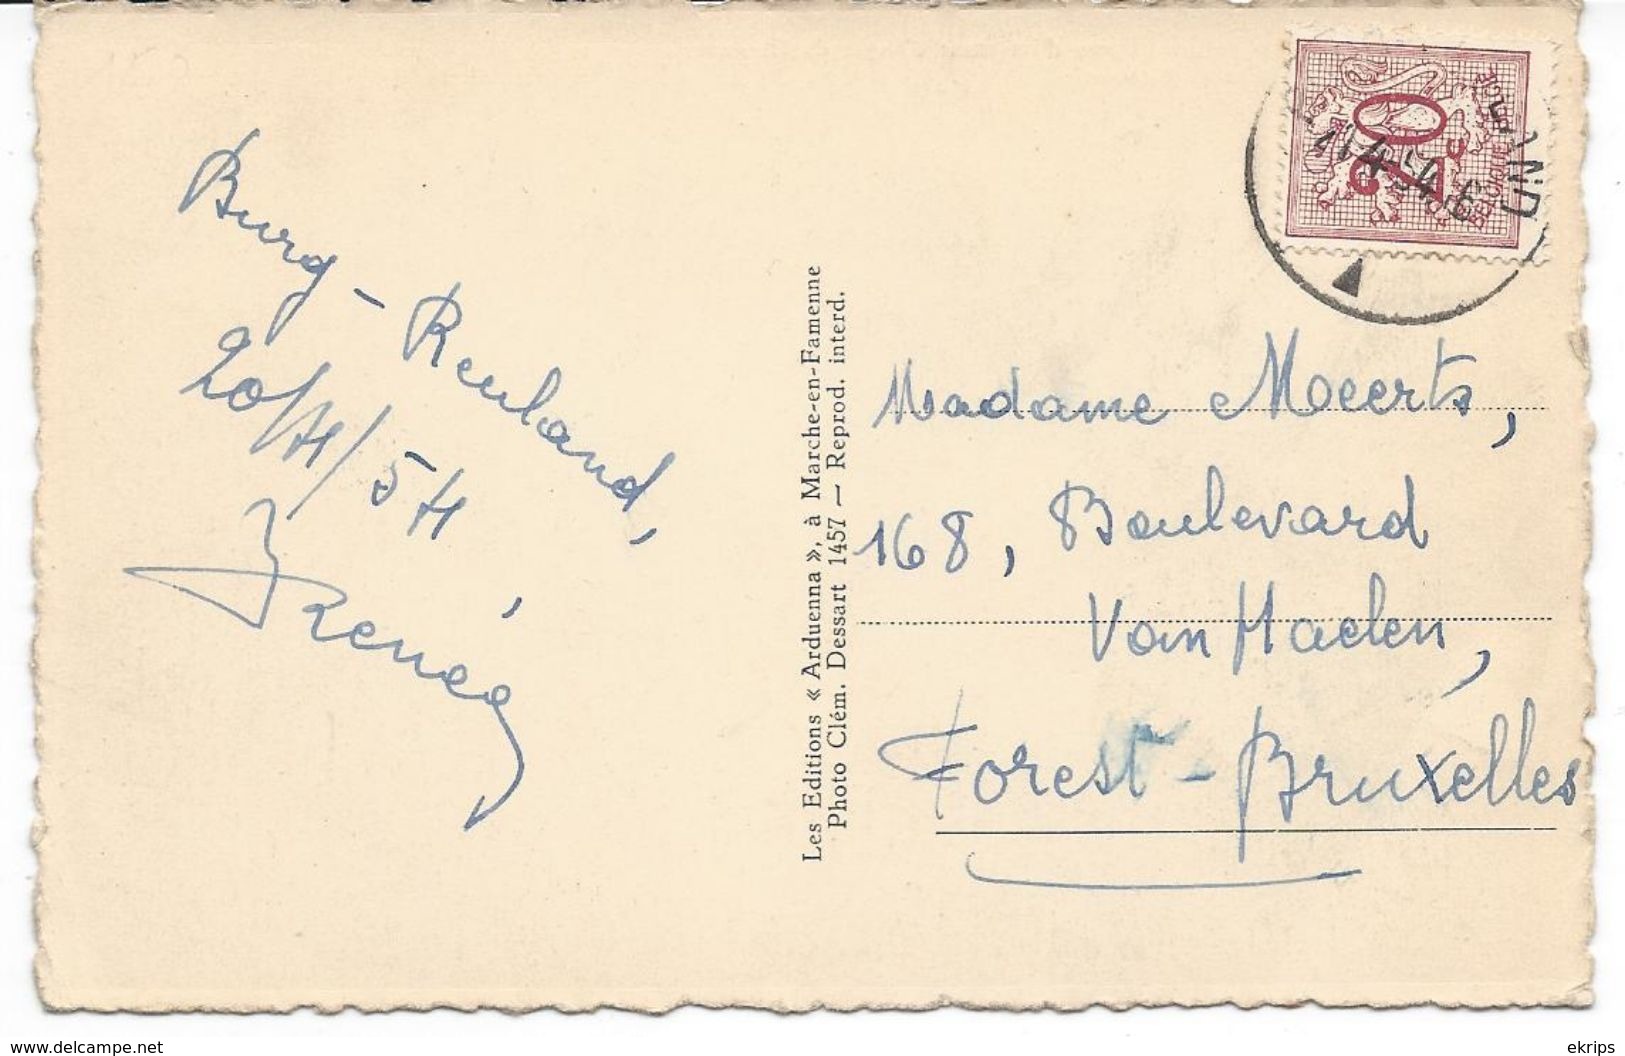 Burg-Reuland,
20/4/54
Irénée
Les Editions « Arduenna », à Marche-en-Famenne
Photo Clém. Dessart 1457 — Reprod. interd.
Madame Meerts,
168, Boulevard
Van Haelen,
Forest-Bruxelles
BELGIQUE
www.delcampe.net
ekrips